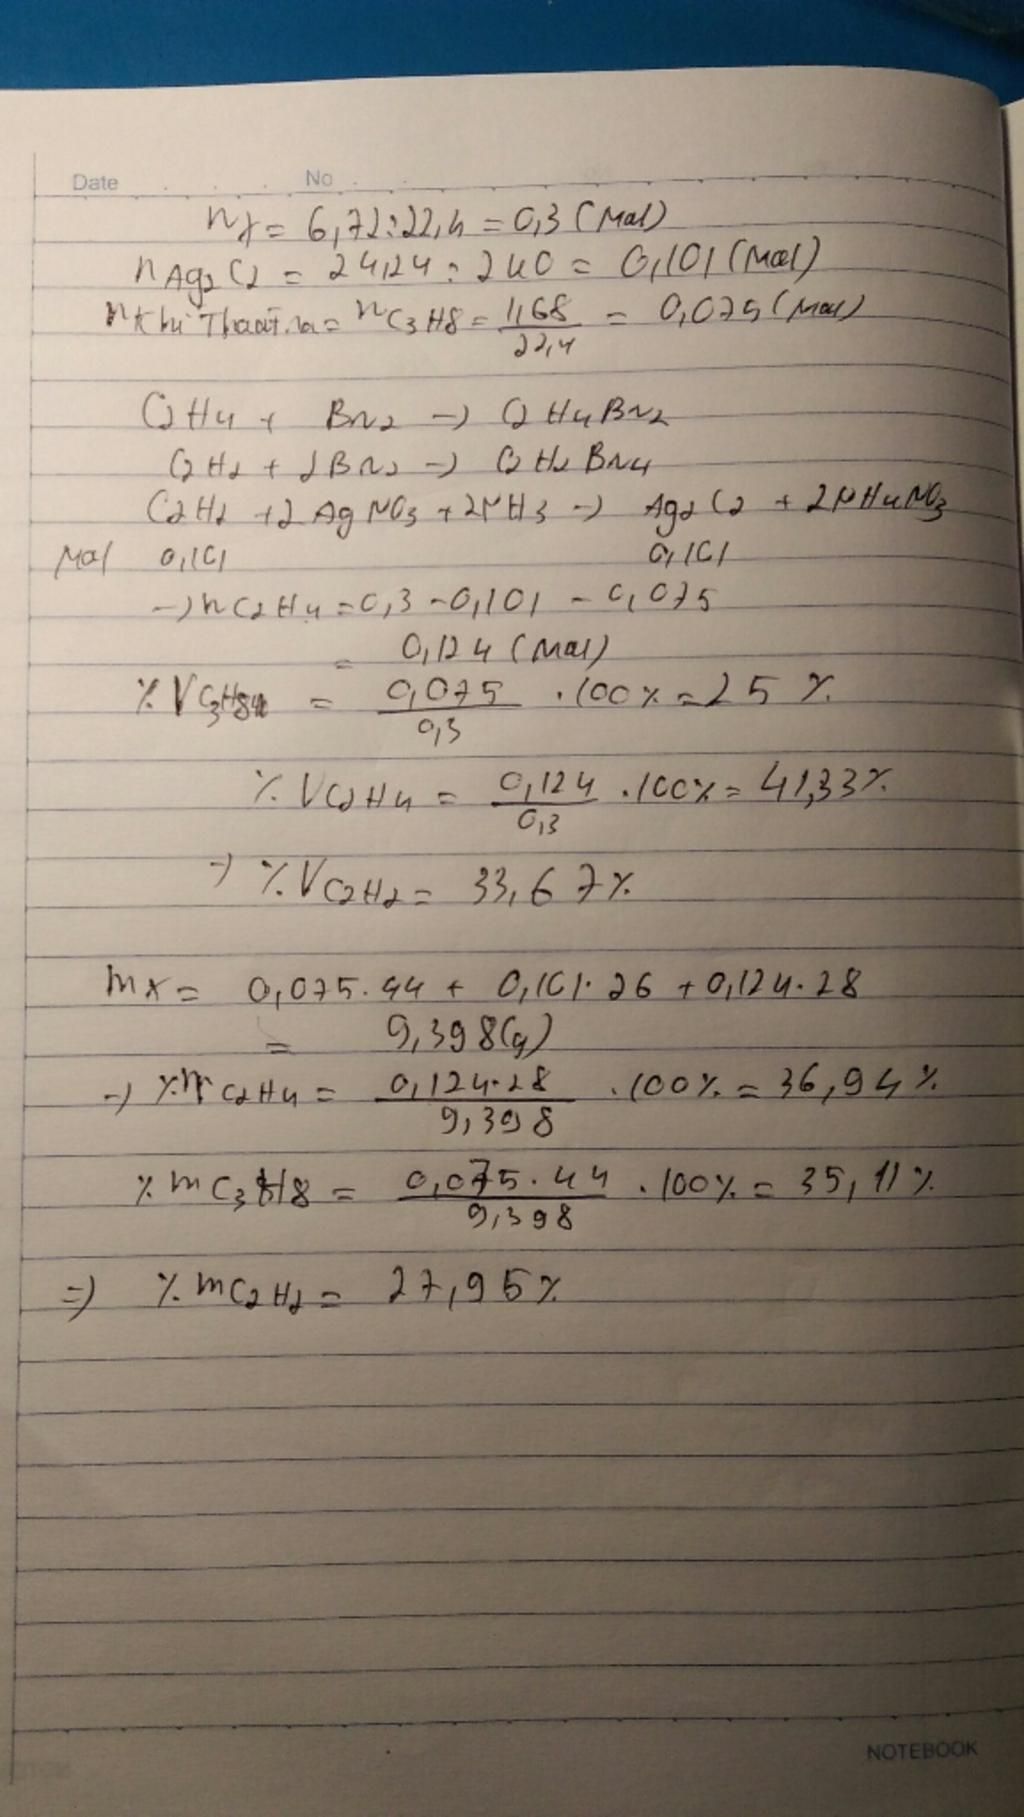 Date No
nX = 6,72:22,4 = 0,3 (Mol)
nAg2C2 = 24,24 : 240 = 0,101 (Mol)
nKhí Thoát ra = nC3H8 = 1,68/22,4 = 0,075 (Mol)
C2H4 + Br2 -> C2H4Br2
C2H2 + 2Br2 -> C2H2Br4
C2H2 + 2AgNO3 + 2NH3 -> Ag2C2 + 2NH4NO3
Mol 0,101 0,101
-> nC2H4 = 0,3 - 0,101 - 0,075
= 0,124 (Mol)
% VC3H8 = 0,075/0,3 . 100% = 25 %
% VC2H4 = 0,124/0,3 . 100% = 41,33%
-> % VC2H2 = 33,67%
mX = 0,075.44 + 0,101.26 + 0,124.28
= 9,398(g)
-> %mC2H4 = 0,124.28/9,398 . 100% = 36,94%
% mC3H8 = 0,075.44/9,398 . 100% = 35,11%
=> % mC2H2 = 27,95%
NOTEBOOK